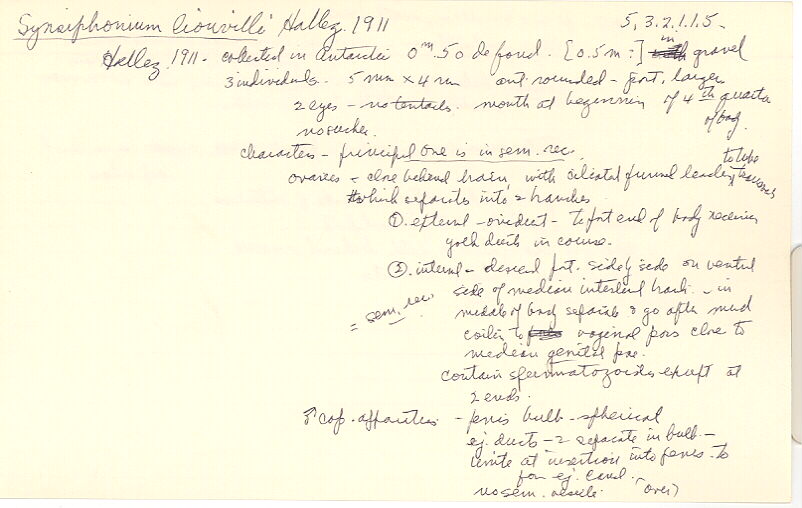 Synsiphonium liouvilli Hallez. 1911
5.3.2.1.1.5.
Hallez. 1911 - collected in Antarctic 0m.50 de fond. [0.5 m?] in gravel
3 individuals. 5 mm x 4 mm ant. rounded - post. larger
2 eyes - no tentacles. mouth at beginning of 4th quarter of body.
no sucker.
characters - principal one is in sem. rec.
ovaries - close behind brain, with ciliated funnel leading to tube
which separates into 2 branches
①. external - oviduct - to post end of body receives
yolk ducts in course.
②. internal - descend post. side by side on ventral
side of median intestinal trunk - in
middle of body separate & go after much
coiling to vaginal pores close to
median genital pore.
= sem. rec.
contain spermatozoids except at
2 ends.
♂ cop. apparatus - penis bulb - spherical
ej. ducts - 2 separate in bulb -
unite at insertion into penis to
form ej. canal.
no sem. vesicle. (over)